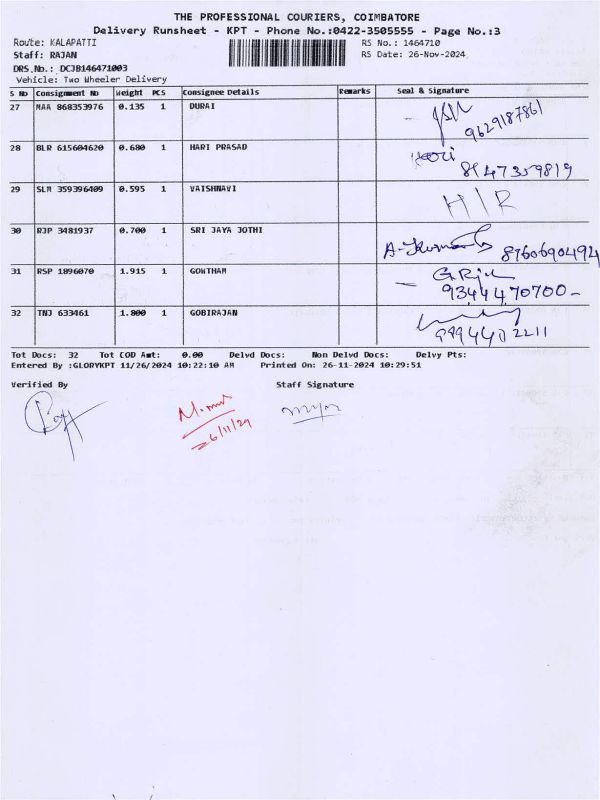 THE PROFESSIONAL COURIERS, COIMBATORE
Delivery Runsheet - KPT - Phone No.:0422-3505555 - Page No.:3
Route: KALAPATTI RS No.: 1464710
Staff: RAJAN RS Date: 26-Nov-2024
DRS.No.: DCJB146471003
Vehicle: Two Wheeler Delivery
S No Consignment No Weight PCS Consignee Details Remarks Seal & Signature
27 MAA 868353976 0.135 1 DURAI
9629187861
28 BLR 615604620 0.680 1 HARI PRASAD
8147359819
29 SLM 359396409 0.595 1 VAISHNAVI H/R
30 RJP 3481937 0.700 1 SRI JAYA JOTHI
8760690494
31 RSP 1896070 1.915 1 GOWTHAM
9344470700-
32 TNJ 633461 1.800 1 GOBIRAJAN
9994402211
Tot Docs: 32 Tot COD Amt: 0.00 Delvd Docs: Non Delvd Docs: Delvy Pts:
Entered By :GLORYKPT 11/26/2024 10:22:10 AM Printed On: 26-11-2024 10:29:51
Verified By Staff Signature
26/11/24